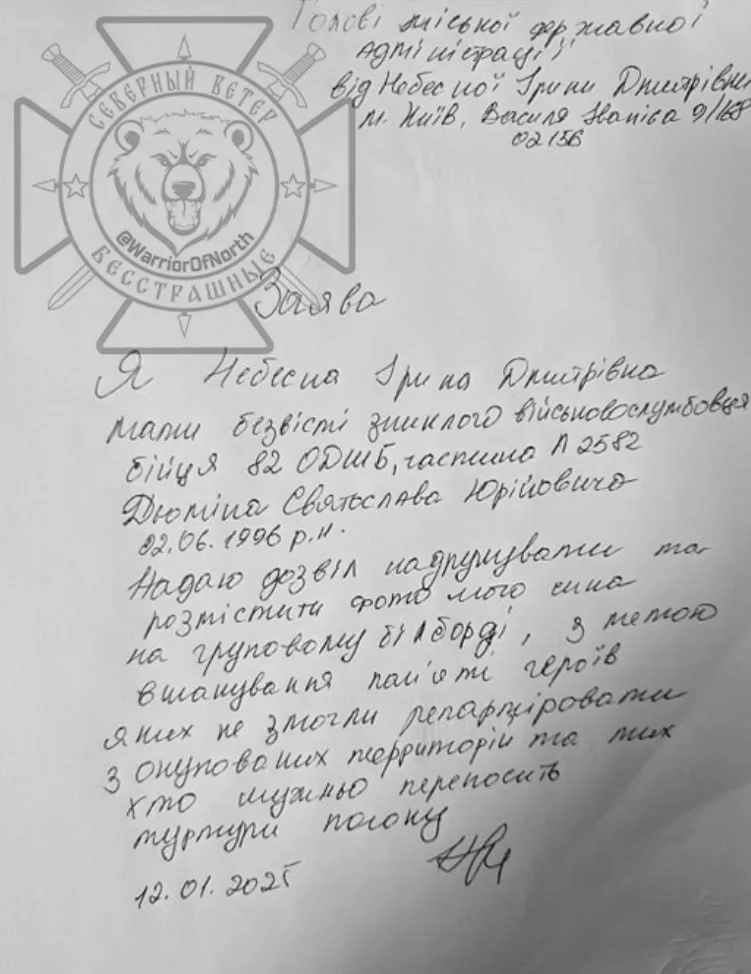 Голові міської державної
адміністрації
від Небесної Ірини Дмитрівни
м. Київ, Василя 9/
02156
СЕВЕРНЫЙ ВЕТЕР
@WarriorOfNorth
БЕССТРАШНЫЕ
Заява
Я Небесна Ірина Дмитрівна
мати безвісті зниклого військовослумбовця
бійця 82 ОДШБ, частина А 2582
Дюміна Святослава Юрійовича
02.06.1996 р.н.
Надаю дозвіл надрукувати та
розмістити фото мого сина
на груповому білборді, з метою
вшанування пам'яті героїв
яких не змогли
з окупованих территорій та тих
хто мужньо переносить
муртури полону
12.01.2025